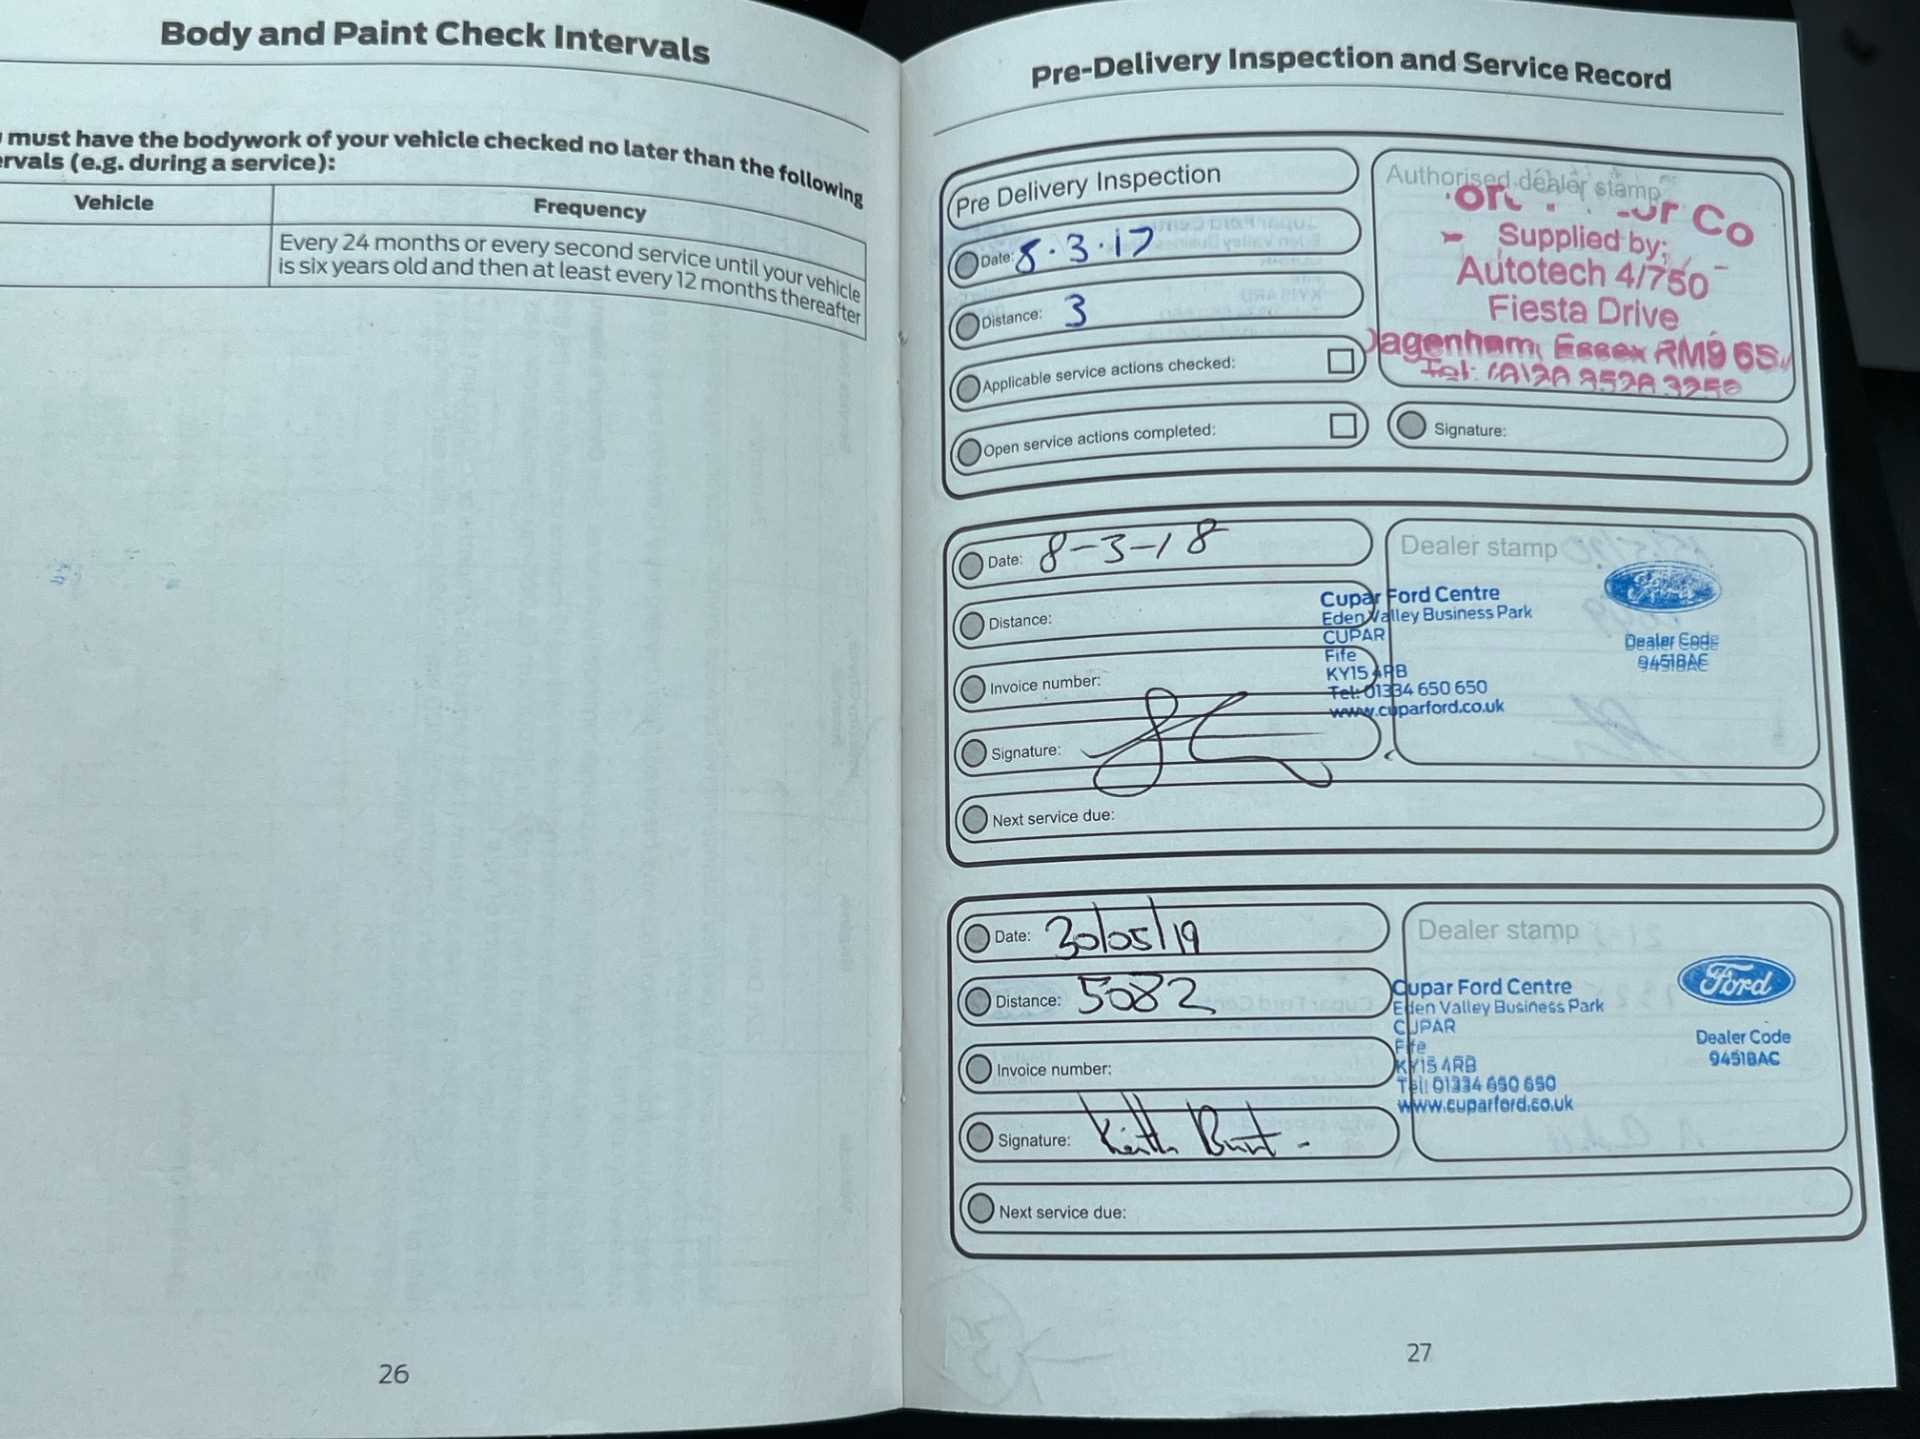 Body and Paint Check Intervals
must have the bodywork of your vehicle checked no later than the following
ervals (e.g. during a service):
Vehicle
Frequency
Every 24 months or every second service until your vehicle
is six years old and then at least every 12 months thereafter
26
Pre-Delivery Inspection and Service Record
Pre Delivery Inspection
Date: 8.3.17
Distance: 3
Applicable service actions checked:
Open service actions completed:
Authorised dealer stamp
Co
Supplied by:
Autotech 4/750
Fiesta Drive
agenham, Essex RM9 6S
Tel:
Signature:
Date: 8-3-18
Distance:
Invoice number:
Signature:
Next service due:
Dealer stamp
Cupar Ford Centre
Eden Valley Business Park
CUPAR
Fife
KY15 4RB
Tel: 01334 650 650
www.cuparford.co.uk
Ford
Dealer Code
9451BAC
Date: 30/05/19
Distance: 5082
Invoice number:
Signature: Keith Burt
Next service due:
Dealer stamp
Cupar Ford Centre
Eden Valley Business Park
CUPAR
Fife
KY15 4RB
Tel: 01334 650 650
www.cuparford.co.uk
Ford
Dealer Code
9451BAC
27